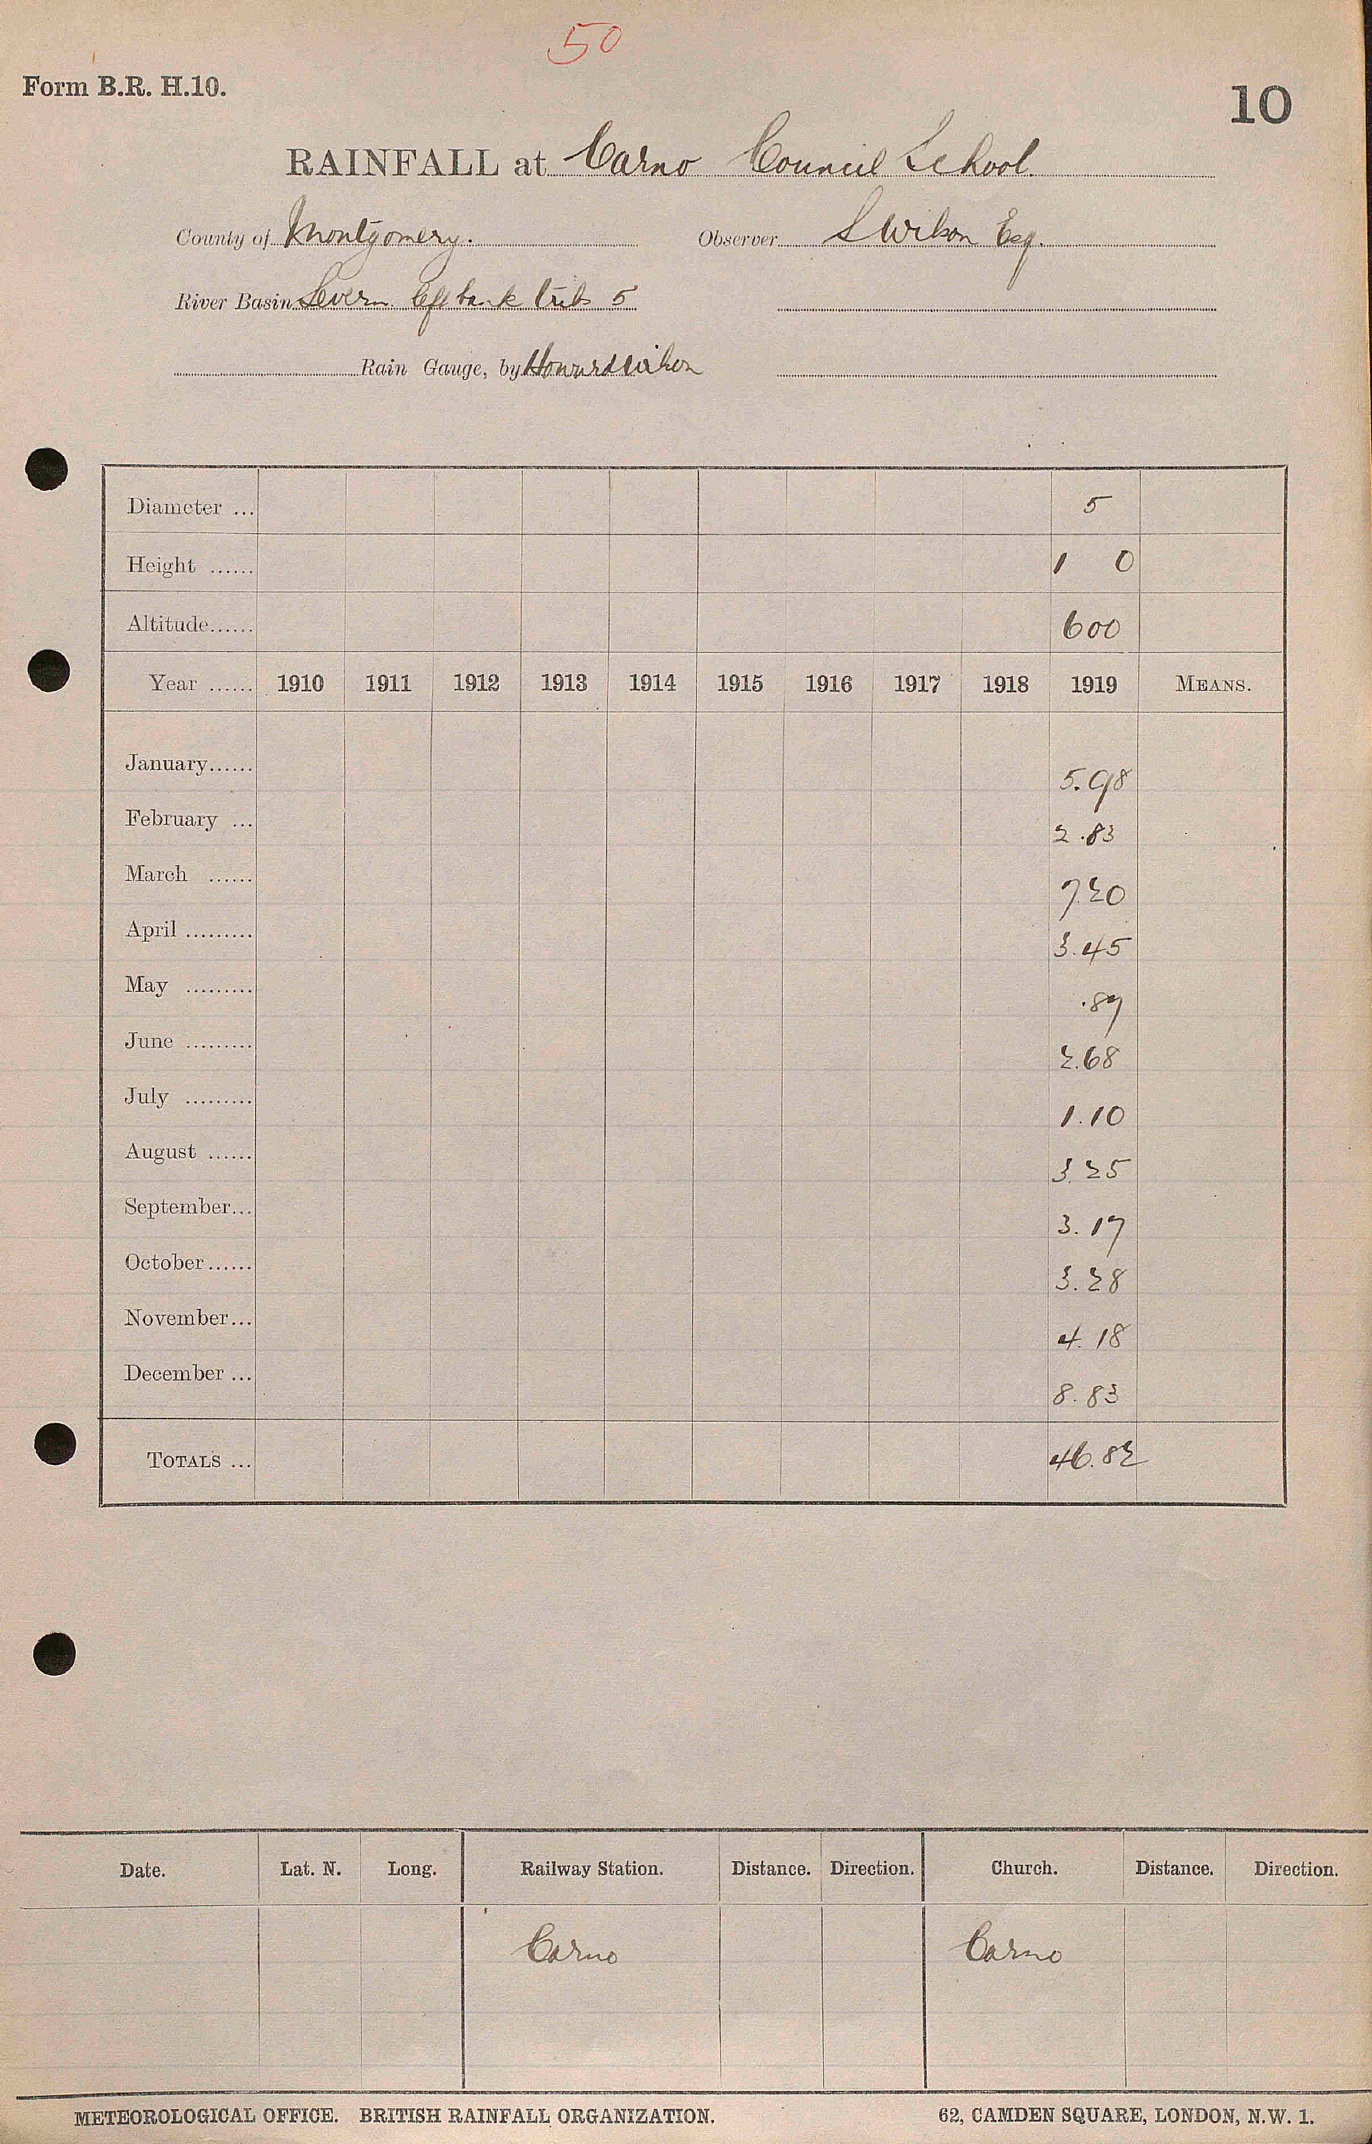 50
Form B.R. H.10.
10
RAINFALL at Carno Council School.
County of Montgomery. Observer S Wilson Esq.
River Basin Severn left bank trib 5
Rain Gauge, by Howard
Diameter ... 5
Height ...... 1 0
Altitude...... 600
Year ...... 1910 1911 1912 1913 1914 1915 1916 1917 1918 1919 MEANS.
January...... 5.98
February ... 2.83
March ...... 7.20
April ......... 3.45
May ......... .87
June ......... 2.68
July ......... 1.10
August ...... 3.25
September... 3.17
October...... 3.28
November... 4.18
December ... 8.83
TOTALS ... 46.82
Date. Lat. N. Long. Railway Station. Distance. Direction. Church. Distance. Direction.
Carno Carno
METEOROLOGICAL OFFICE. BRITISH RAINFALL ORGANIZATION. 62, CAMDEN SQUARE, LONDON, N.W. 1.